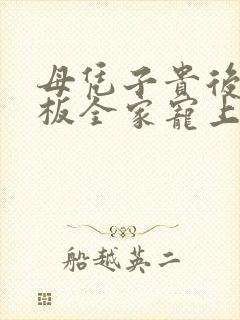 母凭子貴後
板全家寵上
船越英二